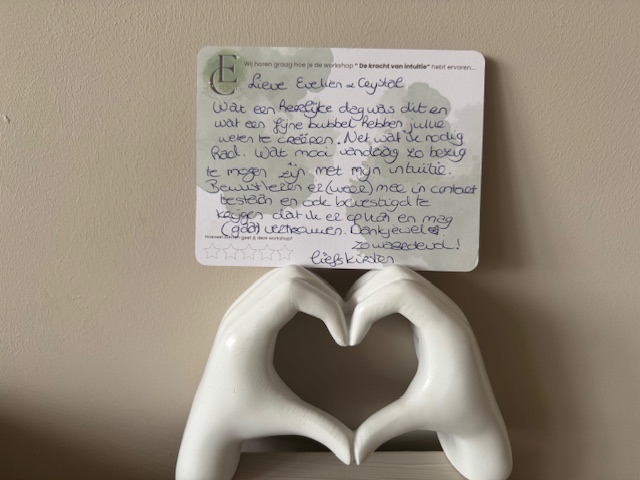 EC
Wij horen graag hoe je de workshop " De kracht van intuïtie" hebt ervaren...
Lieve Evelien & Crystal
Wat een heerlijke dag was dit en
wat een fijne bubbel hebben jullie
weten te creëren. Net wat ik nodig
had. Wat mooi vandaag zo bezig
te mogen zijn met mijn intuïtie.
Bewust leren er (weer) mee in contact
te staan en ook bevestigd te
krijgen dat ik er op kan en mag
(gaan) vertrouwen. Dankjewel
Hoeveel sterren geef jij deze workshop?
zo waardevol!
liefs kirsten